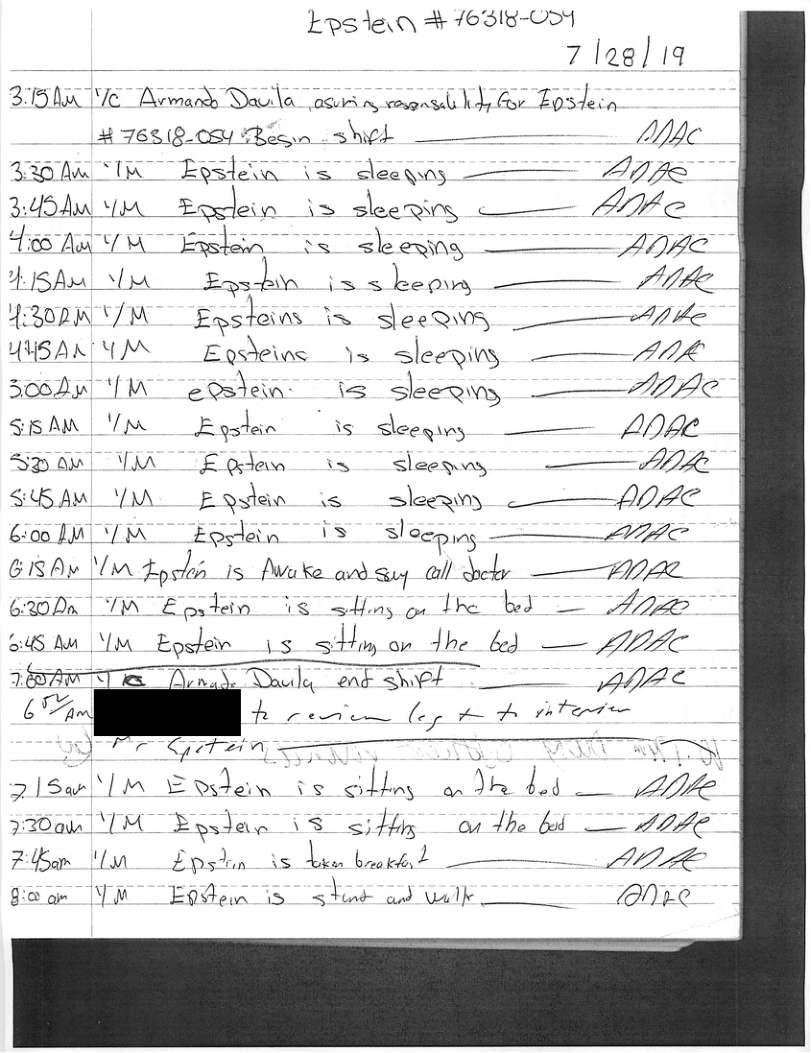 Epstein # 76318-054
7/28/19
3:15AM I/C Armando Davila, asuring responsability For Epstein
# 76318-054 Begin shift ADAC
3:30 Am I/M Epstein is sleeping ADAC
3:45AM I/M Epstein is sleeping ADAC
4:00 Am I/M Epstein is sleeping ADAC
4:15AM I/M Epstein is sleeping ADAC
4:30AM I/M Epsteins is sleeping ADAC
4:45AM I/M Epsteins is sleeping ADAC
5:00 AM I/M epstein is sleeping ADAC
5:15 AM I/M Epstein is sleeping ADAC
5:30 AM I/M Epstein is sleeping ADAC
5:45 AM I/M Epstein is sleeping ADAC
6:00 AM I/M Epstein is sleeping ADAC
6:15 Am I/M Epstein is Awake and say call doctor ADAC
6:30Am I/M Epstein is sitting on the bed ADAC
6:45 AM I/M Epstein is sitting on the bed ADAC
7:00 AM Davila end shift ADAC
AM to review log + to interview
Mr Epstein
7:15am I/M Epstein is sitting on the bed ADAC
7:30am I/M Epstein is sitting on the bed ADAC
7:45am I/M Epstein is taken breakfast ADAC
8:00 am I/M Epstein is stand and walk ADAC